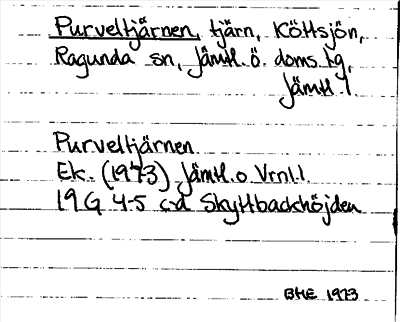 Purveltjärnen, tjärn, Köttsjön,
Ragunda sn, Jämtl. ö. doms. tg,
Jämtl l.
Purveltjärnen
Ek. (1973) Jämtl. o Vrnl. l.
19 G 4-5 c-d Skyttbackhöjden
BHE 1973